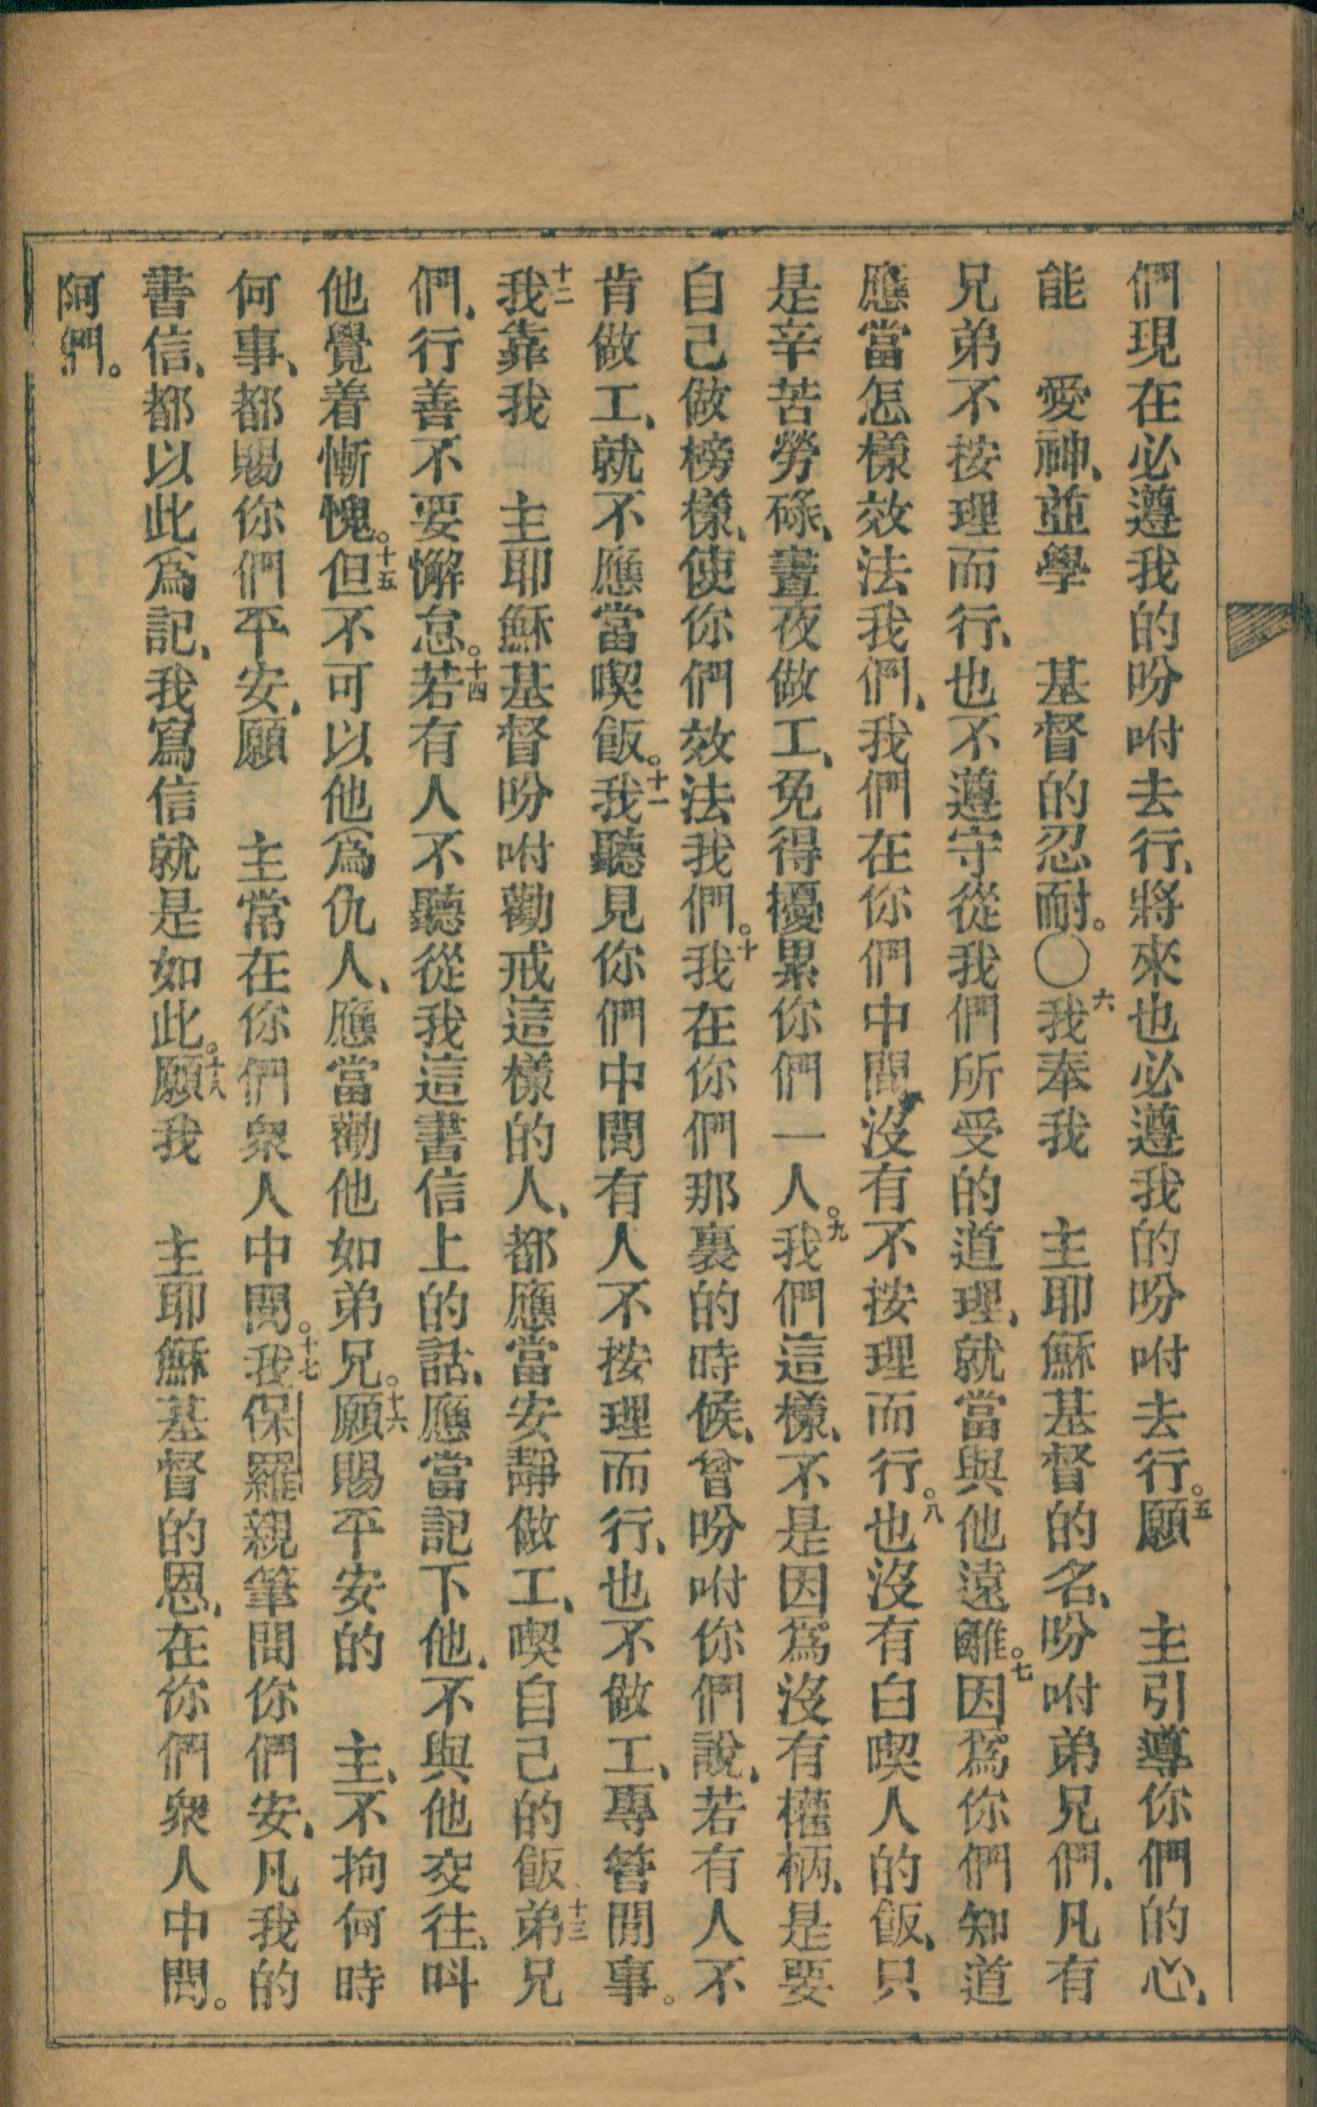 們現在必遵我的吩咐去行、將來也必遵我的吩咐去行。五願　主引導你們的心、
能　愛神、並學　基督的忍耐。〇六我奉我　主耶穌基督的名、吩咐弟兄們、凡有
兄弟不按理而行、也不遵守從我們所受的道理、就當與他遠離。七因爲你們知道
應當怎樣效法我們、我們在你們中間、沒有不按理而行。八也沒有白喫人的飯、只
是辛苦勞碌、晝夜做工、免得擾累你們一人。九我們這樣、不是因爲沒有權柄、是要
自己做榜樣、使你們效法我們。十我在你們那裏的時候、曾吩咐你們說、若有人不
肯做工、就不應當喫飯。十一我聽見你們中間有人不按理而行、也不做工、專管閒事。
十二我靠我　主耶穌基督吩咐勸戒這樣的人、都應當安靜做工、喫自己的飯十三弟兄
們、行善不要懈怠。十四若有人不聽從我這書信上的話、應當記下他、不與他交往、呌
他覺着慚愧。十五但不可以他爲仇人、應當勸他如弟兄。十六願賜平安的　主、不拘何時
何事、都賜你們平安、願　主常在你們衆人中間。十七我保羅親筆問你們安、凡我的
書信、都以此爲記、我寫信就是如此。十八願我　主耶穌基督的恩、在你們衆人中間。
阿們。